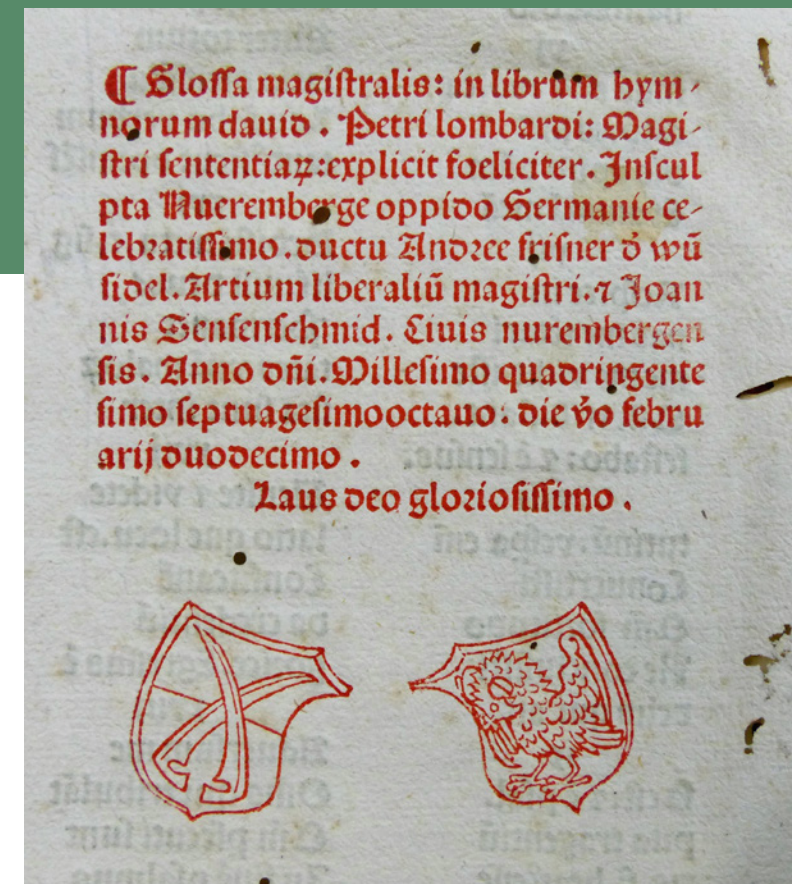 ¶ Glossa magistralis: in librum hym-
norum dauid. Petri lombardi: Magi-
stri sententiaꝝ:explicit foeliciter. Inscul
pta Nueremberge oppido Germanie ce-
lebratissimo.ductu Andree frisner ď wū
sidel.Artium liberaliū magistri.⁊ Joan
nis Sensenschmid. Ciuis nurembergen
sis. Anno dn̄i. Millesimo quadringente
simo septuagesimooctauo: die v̊o febru
arij duodecimo.
Laus deo gloriosissimo.